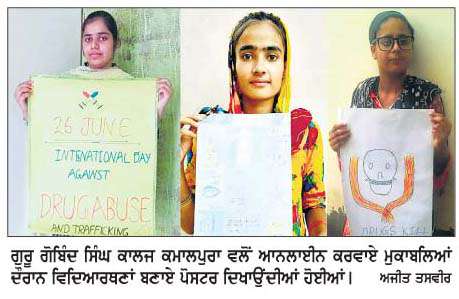 26 JUNE
INTERNATIONAL DAY
AGAINST
DRUG ABUSE
AND TRAFFICKING
DRUGS KILL
ਗੁਰੂ ਗੋਬਿੰਦ ਸਿੰਘ ਕਾਲਜ ਕਮਾਲਪੁਰਾ ਵਲੋਂ ਆਨਲਾਈਨ ਕਰਵਾਏ ਮੁਕਾਬਲਿਆਂ
ਦੌਰਾਨ ਵਿਦਿਆਰਥਣਾਂ ਬਣਾਏ ਪੋਸਟਰ ਦਿਖਾਉਂਦੀਆਂ ਹੋਈਆਂ। ਅਜੀਤ ਤਸਵੀਰ